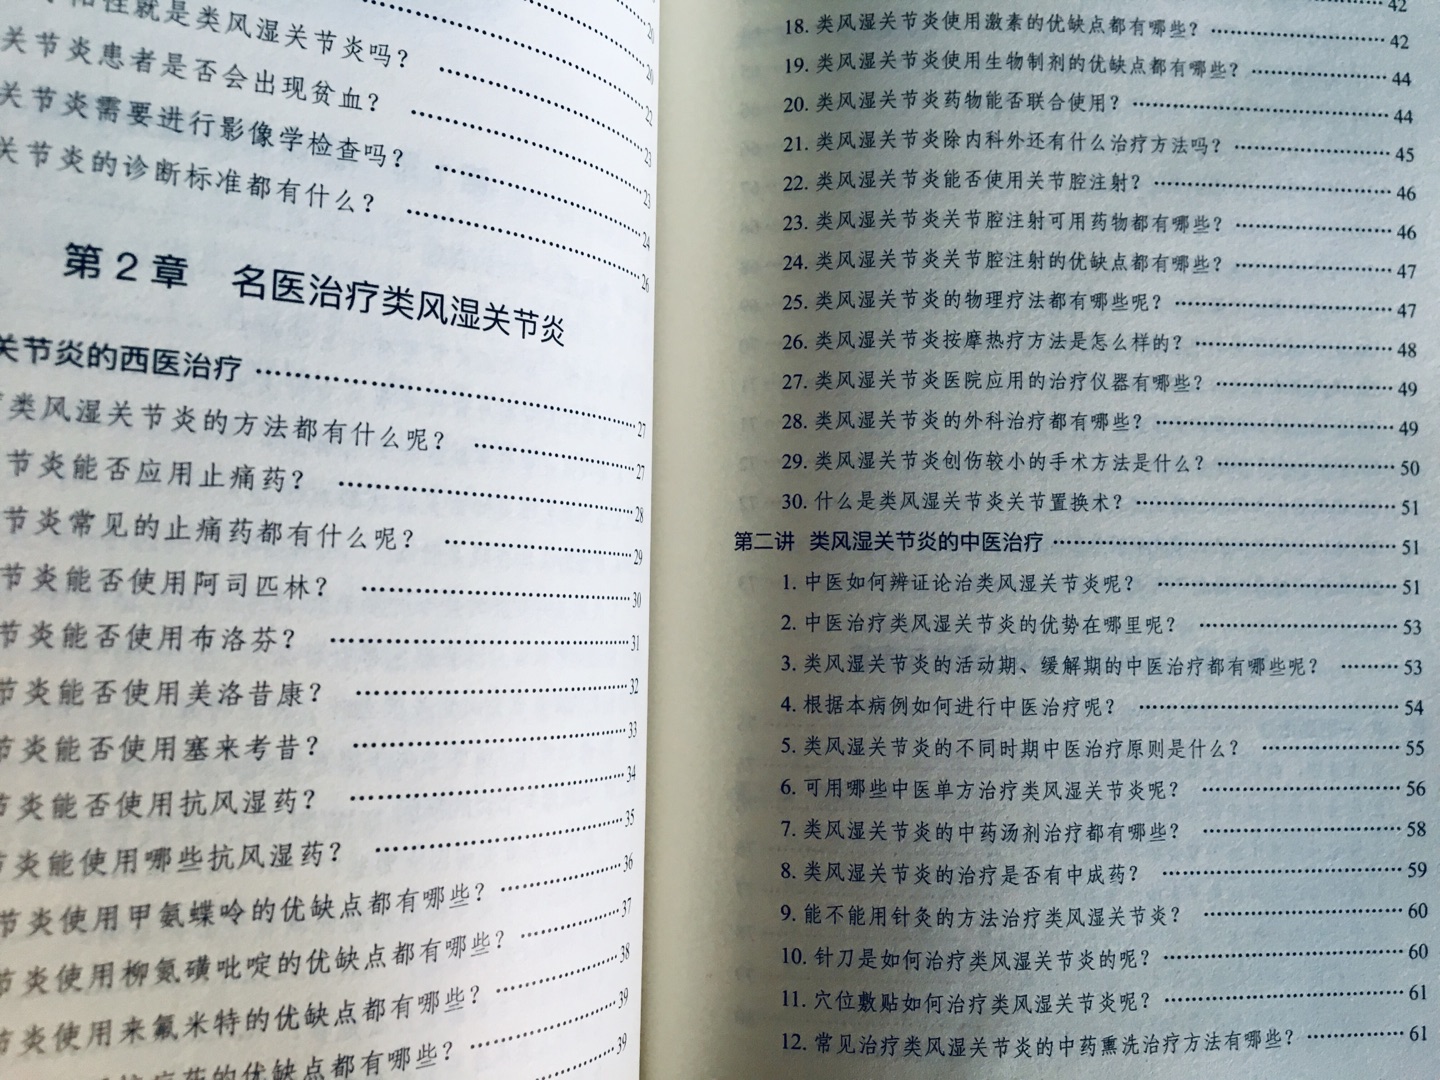 性就是类风湿关节炎吗？
关节炎患者是否会出现贫血？ 22
关节炎需要进行影像学检查吗？ 23
关节炎的诊断标准都有什么？ 26
第2章 名医治疗类风湿关节炎
关节炎的西医治疗 27
类风湿关节炎的方法都有什么呢？ 27
节炎能否应用止痛药？ 28
节炎常见的止痛药都有什么呢？ 29
节炎能否使用阿司匹林？ 30
节炎能否使用布洛芬？ 31
节炎能否使用美洛昔康？ 32
节炎能否使用塞来考昔？ 33
节炎能否使用抗风湿药？ 34
节炎能使用哪些抗风湿药？ 35
节炎使用甲氨蝶呤的优缺点都有哪些？ 36
节炎使用柳氮磺吡啶的优缺点都有哪些？ 37
节炎使用来氟米特的优缺点都有哪些？ 38
药的优缺点都有哪些？ 39
42
18. 类风湿关节炎使用激素的优缺点都有哪些？ 42
19. 类风湿关节炎使用生物制剂的优缺点都有哪些？ 44
20. 类风湿关节炎药物能否联合使用？ 44
21. 类风湿关节炎除内科外还有什么治疗方法吗？ 45
22. 类风湿关节炎能否使用关节腔注射？ 46
23. 类风湿关节炎关节腔注射可用药物都有哪些？ 46
24. 类风湿关节炎关节腔注射的优缺点都有哪些？ 47
25. 类风湿关节炎的物理疗法都有哪些呢？ 47
26. 类风湿关节炎按摩热疗方法是怎么样的？ 48
27. 类风湿关节炎医院应用的治疗仪器有哪些？ 49
28. 类风湿关节炎的外科治疗都有哪些？ 49
29. 类风湿关节炎创伤较小的手术方法是什么？ 50
30. 什么是类风湿关节炎关节置换术？ 51
第二讲 类风湿关节炎的中医治疗 51
1. 中医如何辨证论治类风湿关节炎呢？ 51
2. 中医治疗类风湿关节炎的优势在哪里呢？ 53
3. 类风湿关节炎的活动期、缓解期的中医治疗都有哪些呢？ 53
4. 根据本病例如何进行中医治疗呢？ 54
5. 类风湿关节炎的不同时期中医治疗原则是什么？ 55
6. 可用哪些中医单方治疗类风湿关节炎呢？ 56
7. 类风湿关节炎的中药汤剂治疗都有哪些？ 58
8. 类风湿关节炎的治疗是否有中成药？ 59
9. 能不能用针灸的方法治疗类风湿关节炎？ 60
10. 针刀是如何治疗类风湿关节炎的呢？ 60
11. 穴位敷贴如何治疗类风湿关节炎呢？ 61
12. 常见治疗类风湿关节炎的中药熏洗治疗方法有哪些？ 61